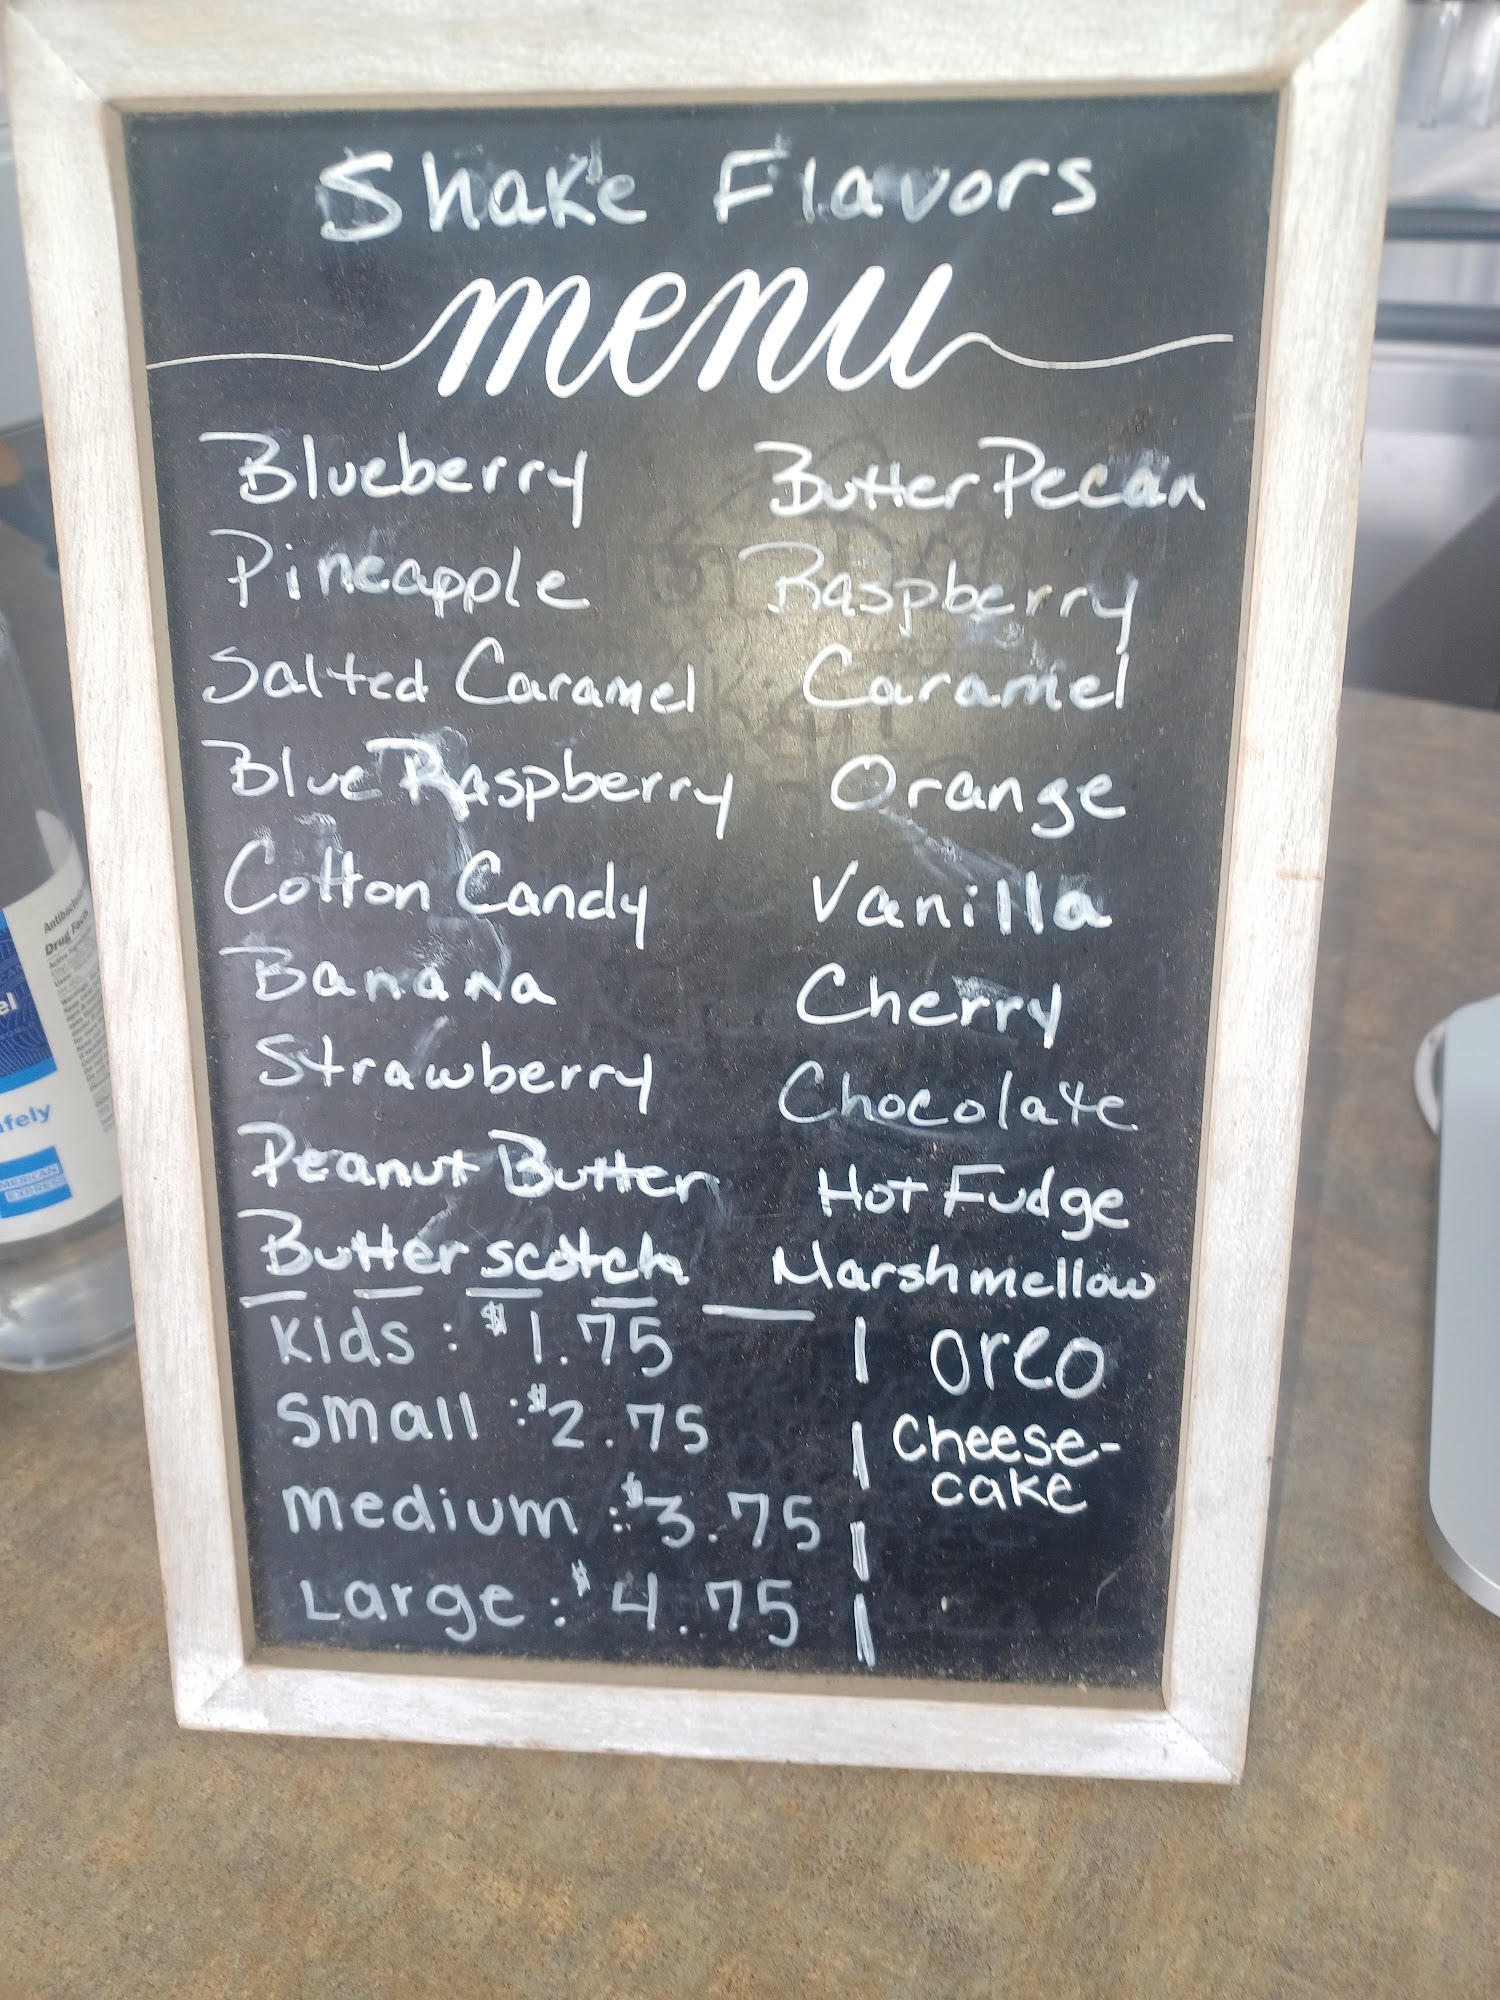 Shake Flavors
menu
Blueberry
Pineapple
Salted Caramel
Blue Raspberry
Cotton Candy
Banana
Strawberry
Peanut Butter
Butter scotch
Butter Pecan
Raspberry
Caramel
Orange
Vanilla
Cherry
Chocolate
Hot Fudge
Marshmellow
oreo
Cheese-
cake
Kids: $1.75
Small: $2.75
Medium: $3.75
Large: $4.75
Antibac
Drug Facts
el
afely
AMERICAN
EXPRESS